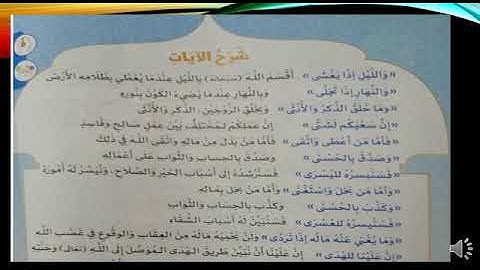 شَرْحُ الآيَاتِ
«وَاللَّيْلِ إِذَا يَغْشَى» أَقْسَمَ اللَّه (سُبْحَانَهُ) بِاللَّيْلِ عِنْدَمَا يُغَطِّي بِظَلَامِهِ الأَرْضَ
«وَالنَّهَارِ إِذَا تَجَلَّى» وَبِالنَّهَارِ عِنْدَمَا يُضِيءُ الْكَوْنَ بِنُورِهِ
«وَمَا خَلَقَ الذَّكَرَ وَالأُنْثَى» وَبِخَلْقِ الزَّوْجَيْنِ، الذَّكَرِ وَالأُنْثَى
«إِنَّ سَعْيَكُمْ لَشَتَّى» إِنَّ عَمَلَكُمْ لَمُخْتَلِفٌ بَيْنَ عَمَلٍ صَالِحٍ وَفَاسِدٍ
«فَأَمَّا مَنْ أَعْطَى وَاتَّقَى» فَأَمَّا مَنْ بَذَلَ مِنْ مَالِهِ وَاتَّقَى اللَّهَ فِي ذَلِكَ
«وَصَدَّقَ بِالْحُسْنَى» وَصَدَّقَ بِالْحِسَابِ وَالثَّوَابِ عَلَى أَعْمَالِهِ
«فَسَنُيَسِّرُهُ لِلْيُسْرَى» فَسَنُرْشِدُهُ إِلَى أَسْبَابِ الْخَيْرِ وَالصَّلَاحِ، وَنُيَسِّرُ لَهُ أُمُورَهُ
«وَأَمَّا مَنْ بَخِلَ وَاسْتَغْنَى» وَأَمَّا مَنْ بَخِلَ بِمَالِهِ
«وَكَذَّبَ بِالْحُسْنَى» وَكَذَّبَ بِالْحِسَابِ وَالثَّوَابِ
«فَسَنُيَسِّرُهُ لِلْعُسْرَى» فَسَنُبَيِّنُ لَهُ أَسْبَابَ الشَّقَاءِ
«وَمَا يُغْنِي عَنْهُ مَالُهُ إِذَا تَرَدَّى» وَلَنْ يَحْمِيَهُ مَالُهُ مِنَ الْعِقَابِ وَالْوُقُوعِ فِي غَضَبِ اللَّهِ
«إِنَّ عَلَيْنَا لَلْهُدَى» إِنَّ عَلَيْنَا أَنْ نُبَيِّنَ طَرِيقَ الْهُدَى الْمُوَصِّلَ إِلَى اللَّهِ (تَعَالَى) وَجَنَّتِهِ